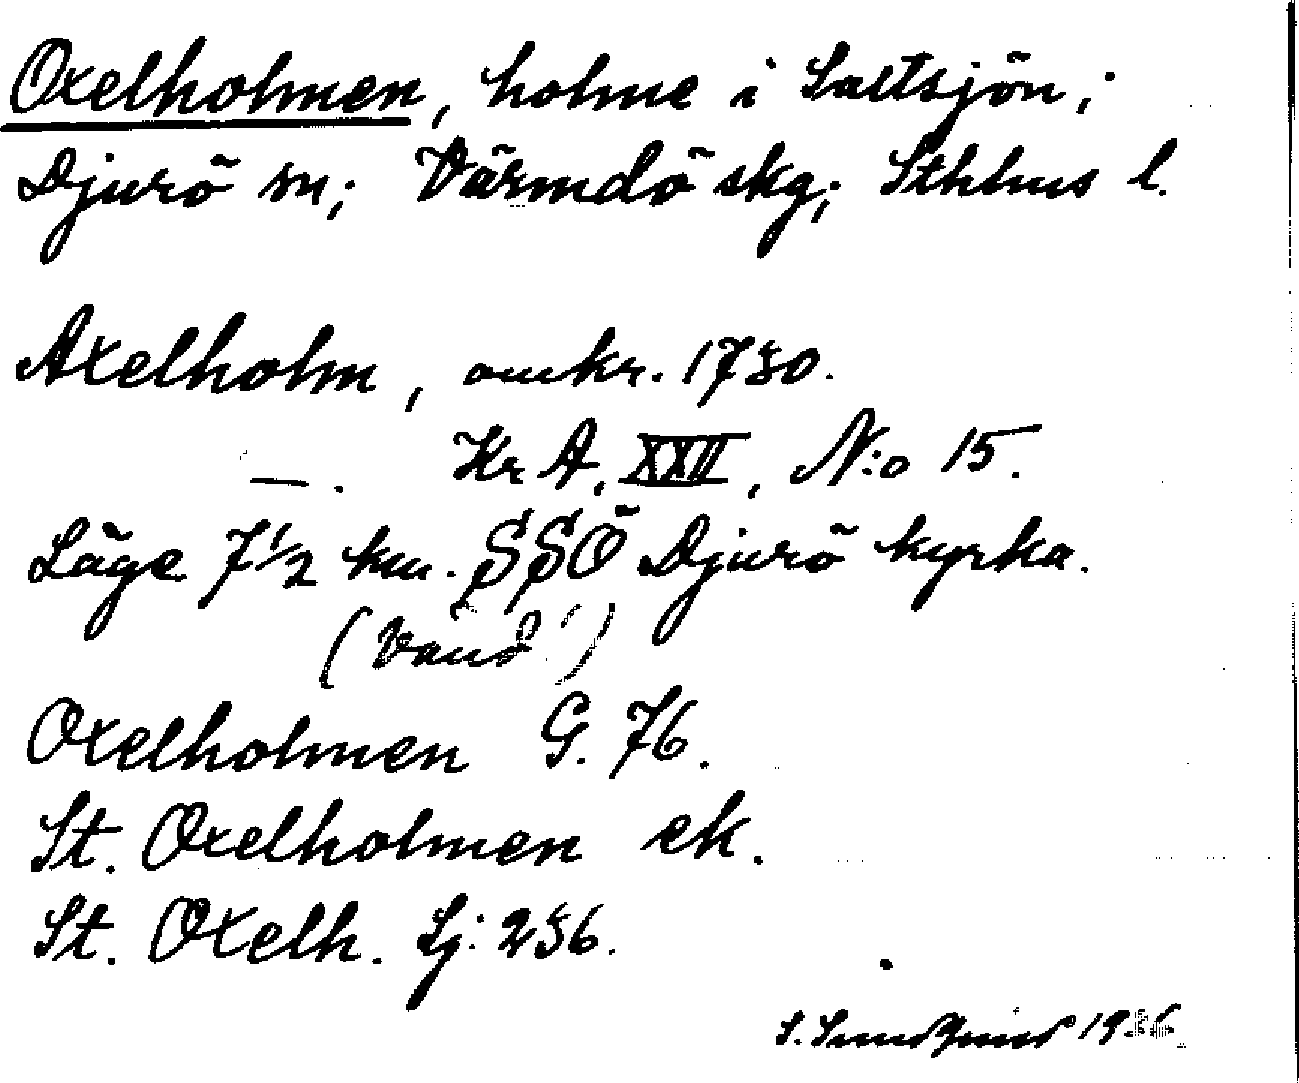 Oxelholmen, holme i Saltsjön;
Djurö sn; Värmdö skg; Sthlms l.
Axelholm, omkr. 1730.
—. Kr A. XXII, N:o 15.
Läge 7 1/2 km. SSÖ Djurö kyrka.
(Vånö)
Oxelholmen G. 76.
St. Oxelholmen ek.
St. Oxelh. Sj: 236.
S. Sundqvist 1936